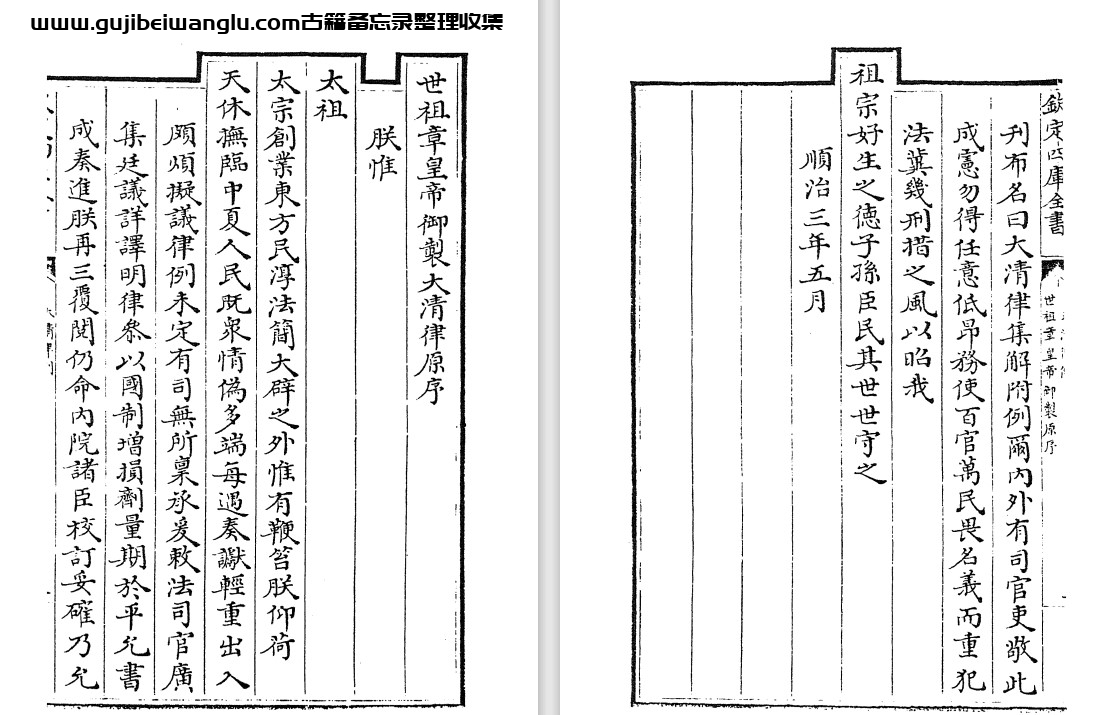 www.gujibeiwanglu.com古籍备忘录整理收集
世祖章皇帝御製大清律原序
朕惟
太祖
太宗創業東方民淳法簡大辟之外惟有鞭笞朕仰荷
天休撫臨中夏人民既衆情偽多端每遇奏讞輕重出入
頗煩擬議律例未定有司無所稟承爰敕法司官廣
集廷議詳譯明律叅以國制增損劑量期於平允書
成奏進朕再三覆閱仍命内院諸臣校訂妥確乃允
欽定四庫全書
世祖章皇帝御製原序
刋布名曰大清律集解附例爾内外有司官吏敬此
成憲勿得任意低昂務使百官萬民畏名義而重犯
法冀幾刑措之風以昭我
祖宗好生之徳子孫臣民其世世守之
順治三年五月